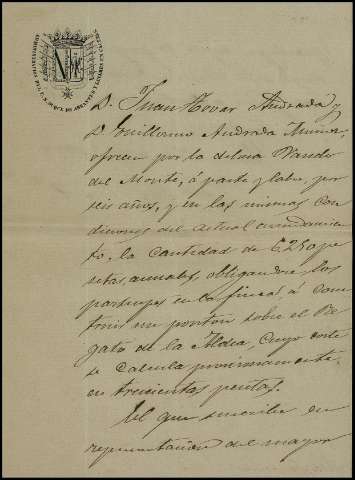 D. Juan Tovar Andrada y
D. Guillermo Andrada Munor
ofrecen por la dehesa
del Monte, á parto y labor, por
seis años, y en las mismas con
diciones del actual arrendamien
to, la cantidad de 6.250 pe
setas anuales, obligandose los
participes en la finca, á cons
truir un ponton sobre el Re
gato de la Aldea, cuyo coste
se calcula proximamente
en trescientas pesetas.
El que suscribe en
representacion del mayor